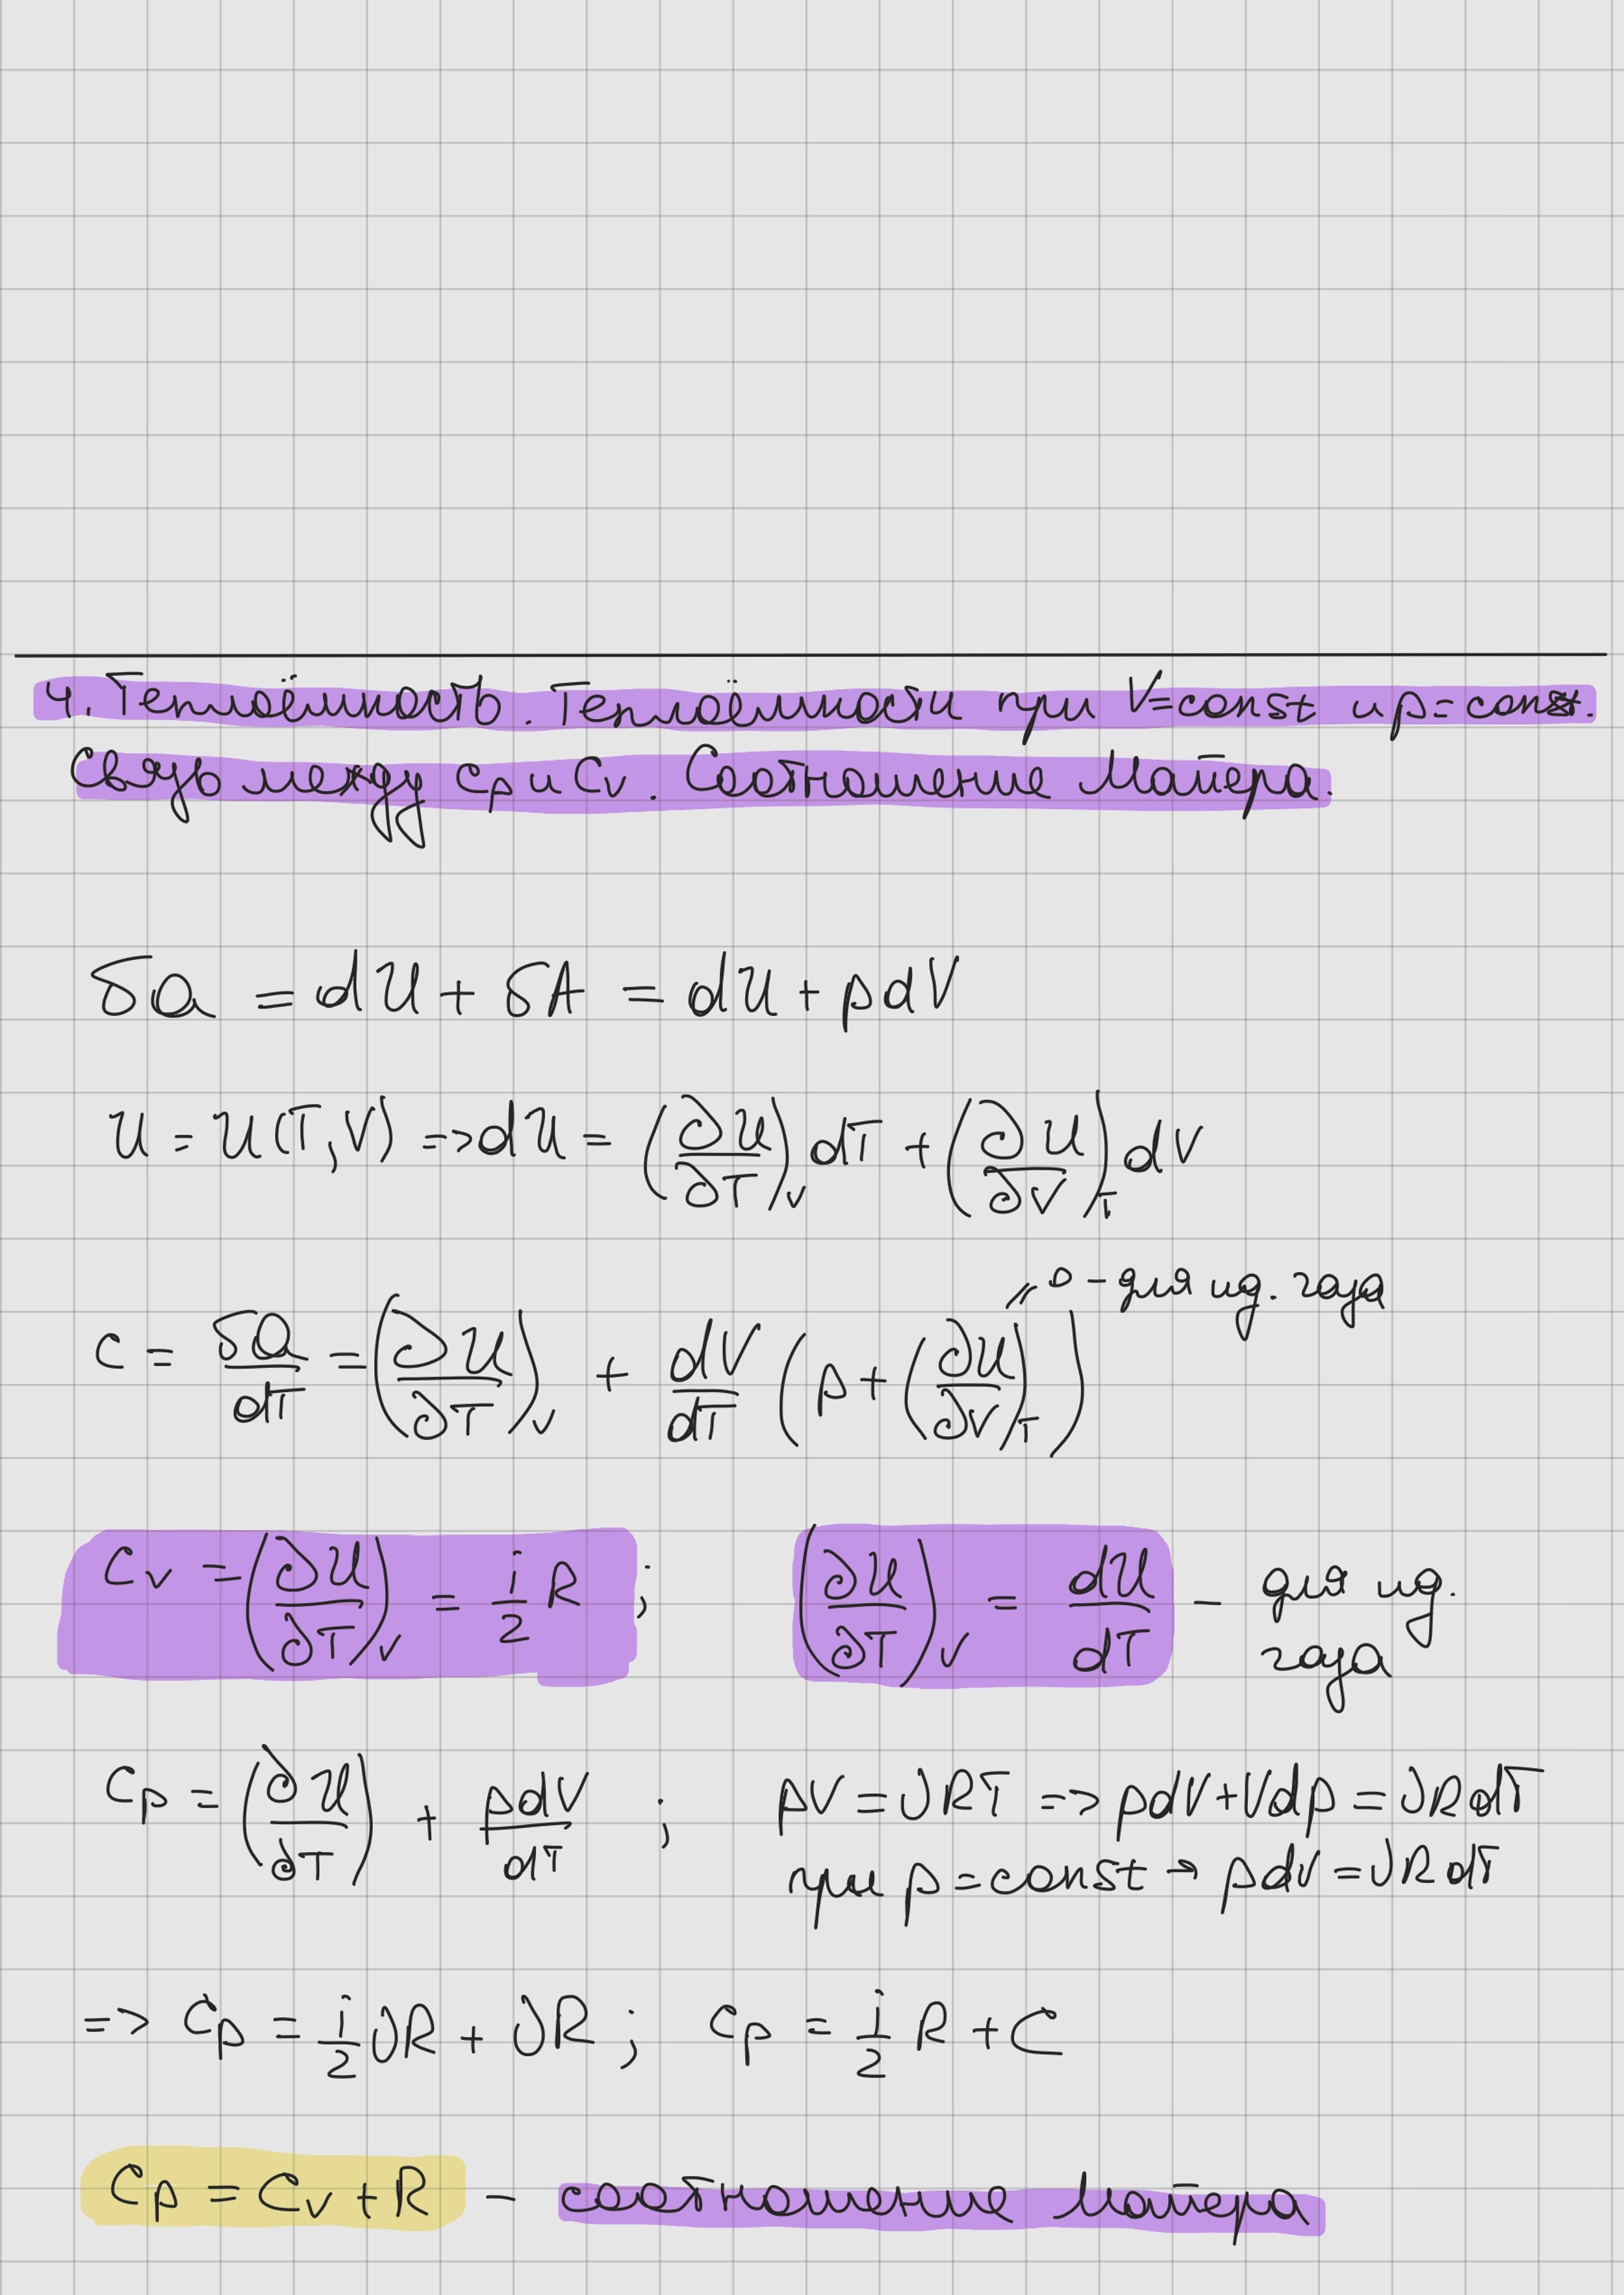 4. Теплоёмкость. Теплоёмкости при V=const и p=const.
Связь между Cp и Cv. Соотношение Майера.
δQ = dU + δA = dU + pdV
U = U(T,V) => dU = (∂U/∂T)_V dT + (∂U/∂V)_T dV
0 - для ид. газа
C = δQ/dT = (∂U/∂T)_V + dV/dT (p + (∂U/∂V)_T)
C_V = (∂U/∂T)_V = i/2 R ; (∂U/∂T)_V = dU/dT - для ид.
газа
C_p = (∂U/∂T) + pdV/dT ; pV = νRT => pdV + Vdp = νRdT
при p = const → pdV = νRdT
=> C_p = i/2 νR + νR ; C_p = i/2 R + C
C_p = C_V + R - соотношение Майера